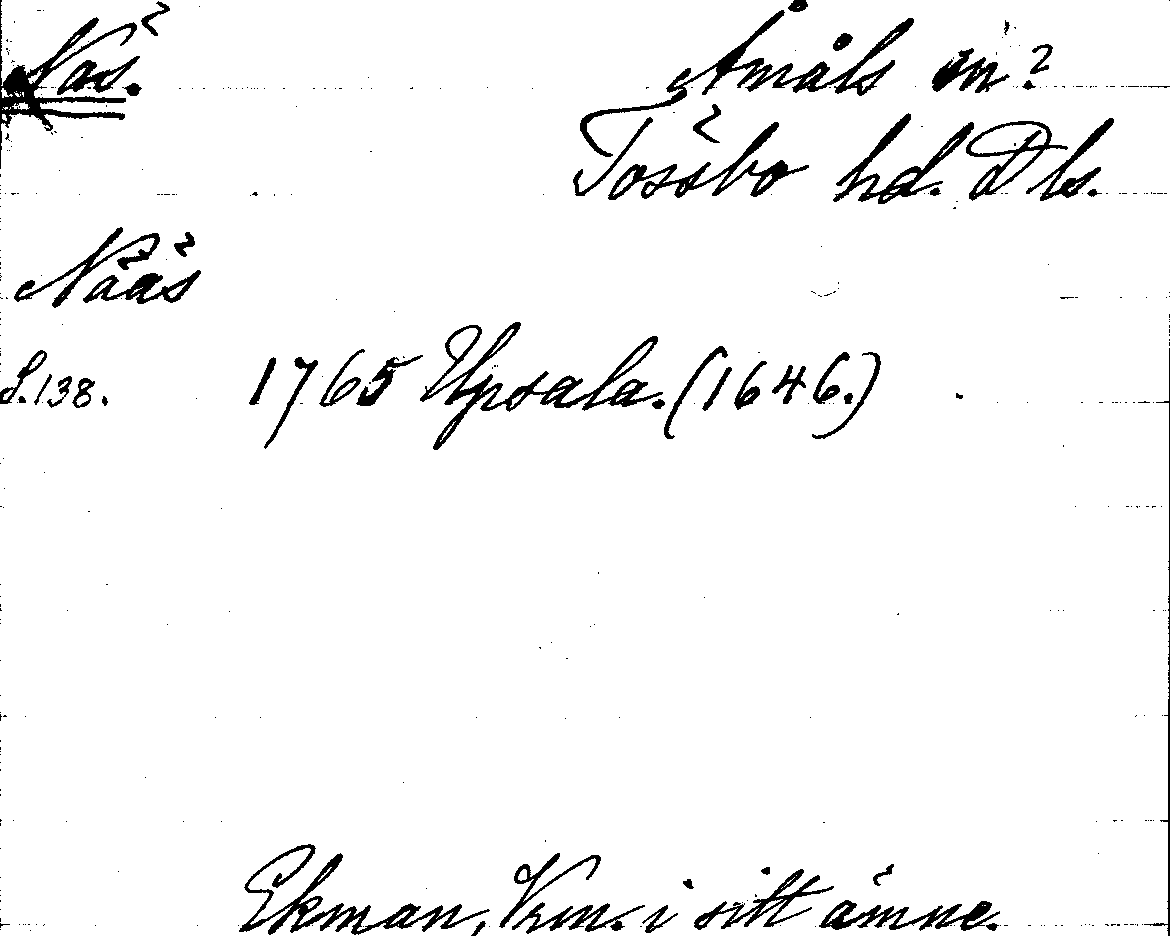 Näs. Åmåls sn?
Tössbo hd. Dls.
Nääs
S.138. 1765 Upsala. (1646.)
Ekman, Vrm. i sitt ämne.